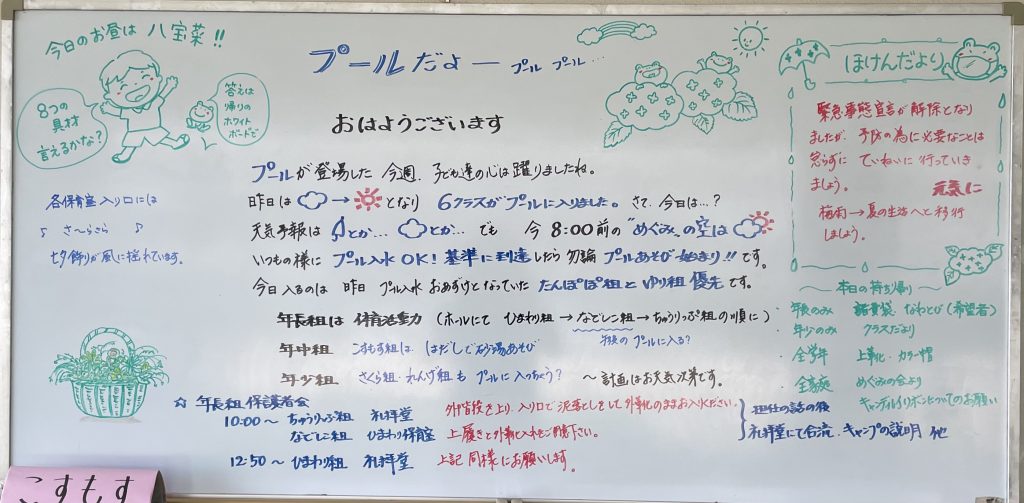 今日のお昼は 八宝菜!!
8つの
具材
言えるかな?
答えは
帰りの
ホワイト
ボードで
プールだよー プール プール…
おはようございます
プールが登場した 今週、子ども達の心は躍りましたね。
昨日は → となり 6クラスがプールに入りました。さて、今日は…?
天気予報は とか… とか… でも 今 8:00前の "めぐみ"の空は
いつもの様に プール入水OK! 基準に到達したら勿論 プールあそび始まり!!です。
今日入るのは 昨日 プール入水 おあずけとなっていた たんぽぽ組と ゆり組 優先です。
年長組は 体育活動 (ホールにて ひまわり組 → なでしこ組 → ちゅうりっぷ組の順に)
プールに入る?
年中組 こすもす組は はだしで砂場あそび
年少組 さくら組・れんげ組も プールに入っちゃう? 〜計画はお天気次第です。
☆ 年長組 保護者会
10:00〜 ちゅうりっぷ組 礼拝堂
なでしこ組 ひまわり保育室
12:50〜 ひまわり組 礼拝堂
外階段を上り、入り口で泥落としをして外靴のままお入りください。
上履きと外靴入れをご用意下さい。
上記同様にお願いします。
担任の話の後
礼拝堂にて合流・キャンプの説明 他
各保育室入り口には
♪ さ〜らさら ♪
七夕飾りが風に揺れています。
ほけんだより
緊急事態宣言が解除となり
ましたが、予防の為に必要なことは
怠らずに ていねいに行っていき
ましょう。 元気に
梅雨→夏の生活へと移行
しましょう。
本日の持ち帰り
年長のみ 諸費袋 なわとび(希望者)
年少のみ クラスだより
全学年 上靴・カラー帽
全家庭 めぐみの会より
キャンドルリボンについてのお願い
こすもす